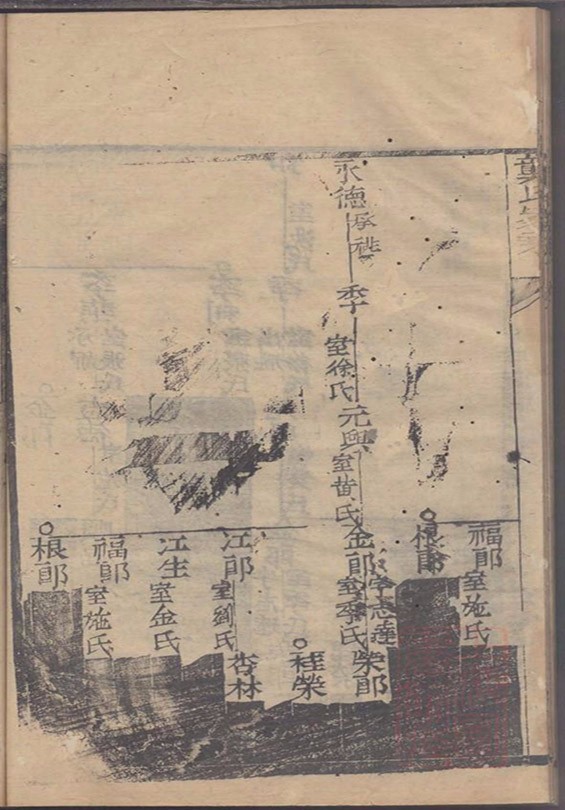 葉氏宗
福郎 室施氏
根郎
永德 承祧 季 室徐氏 元興 室黄氏 金郎 字志達 室李氏 榮郎
桂榮
江郎 室劉氏 杏林
江生 室金氏
福郎 室施氏
根郎